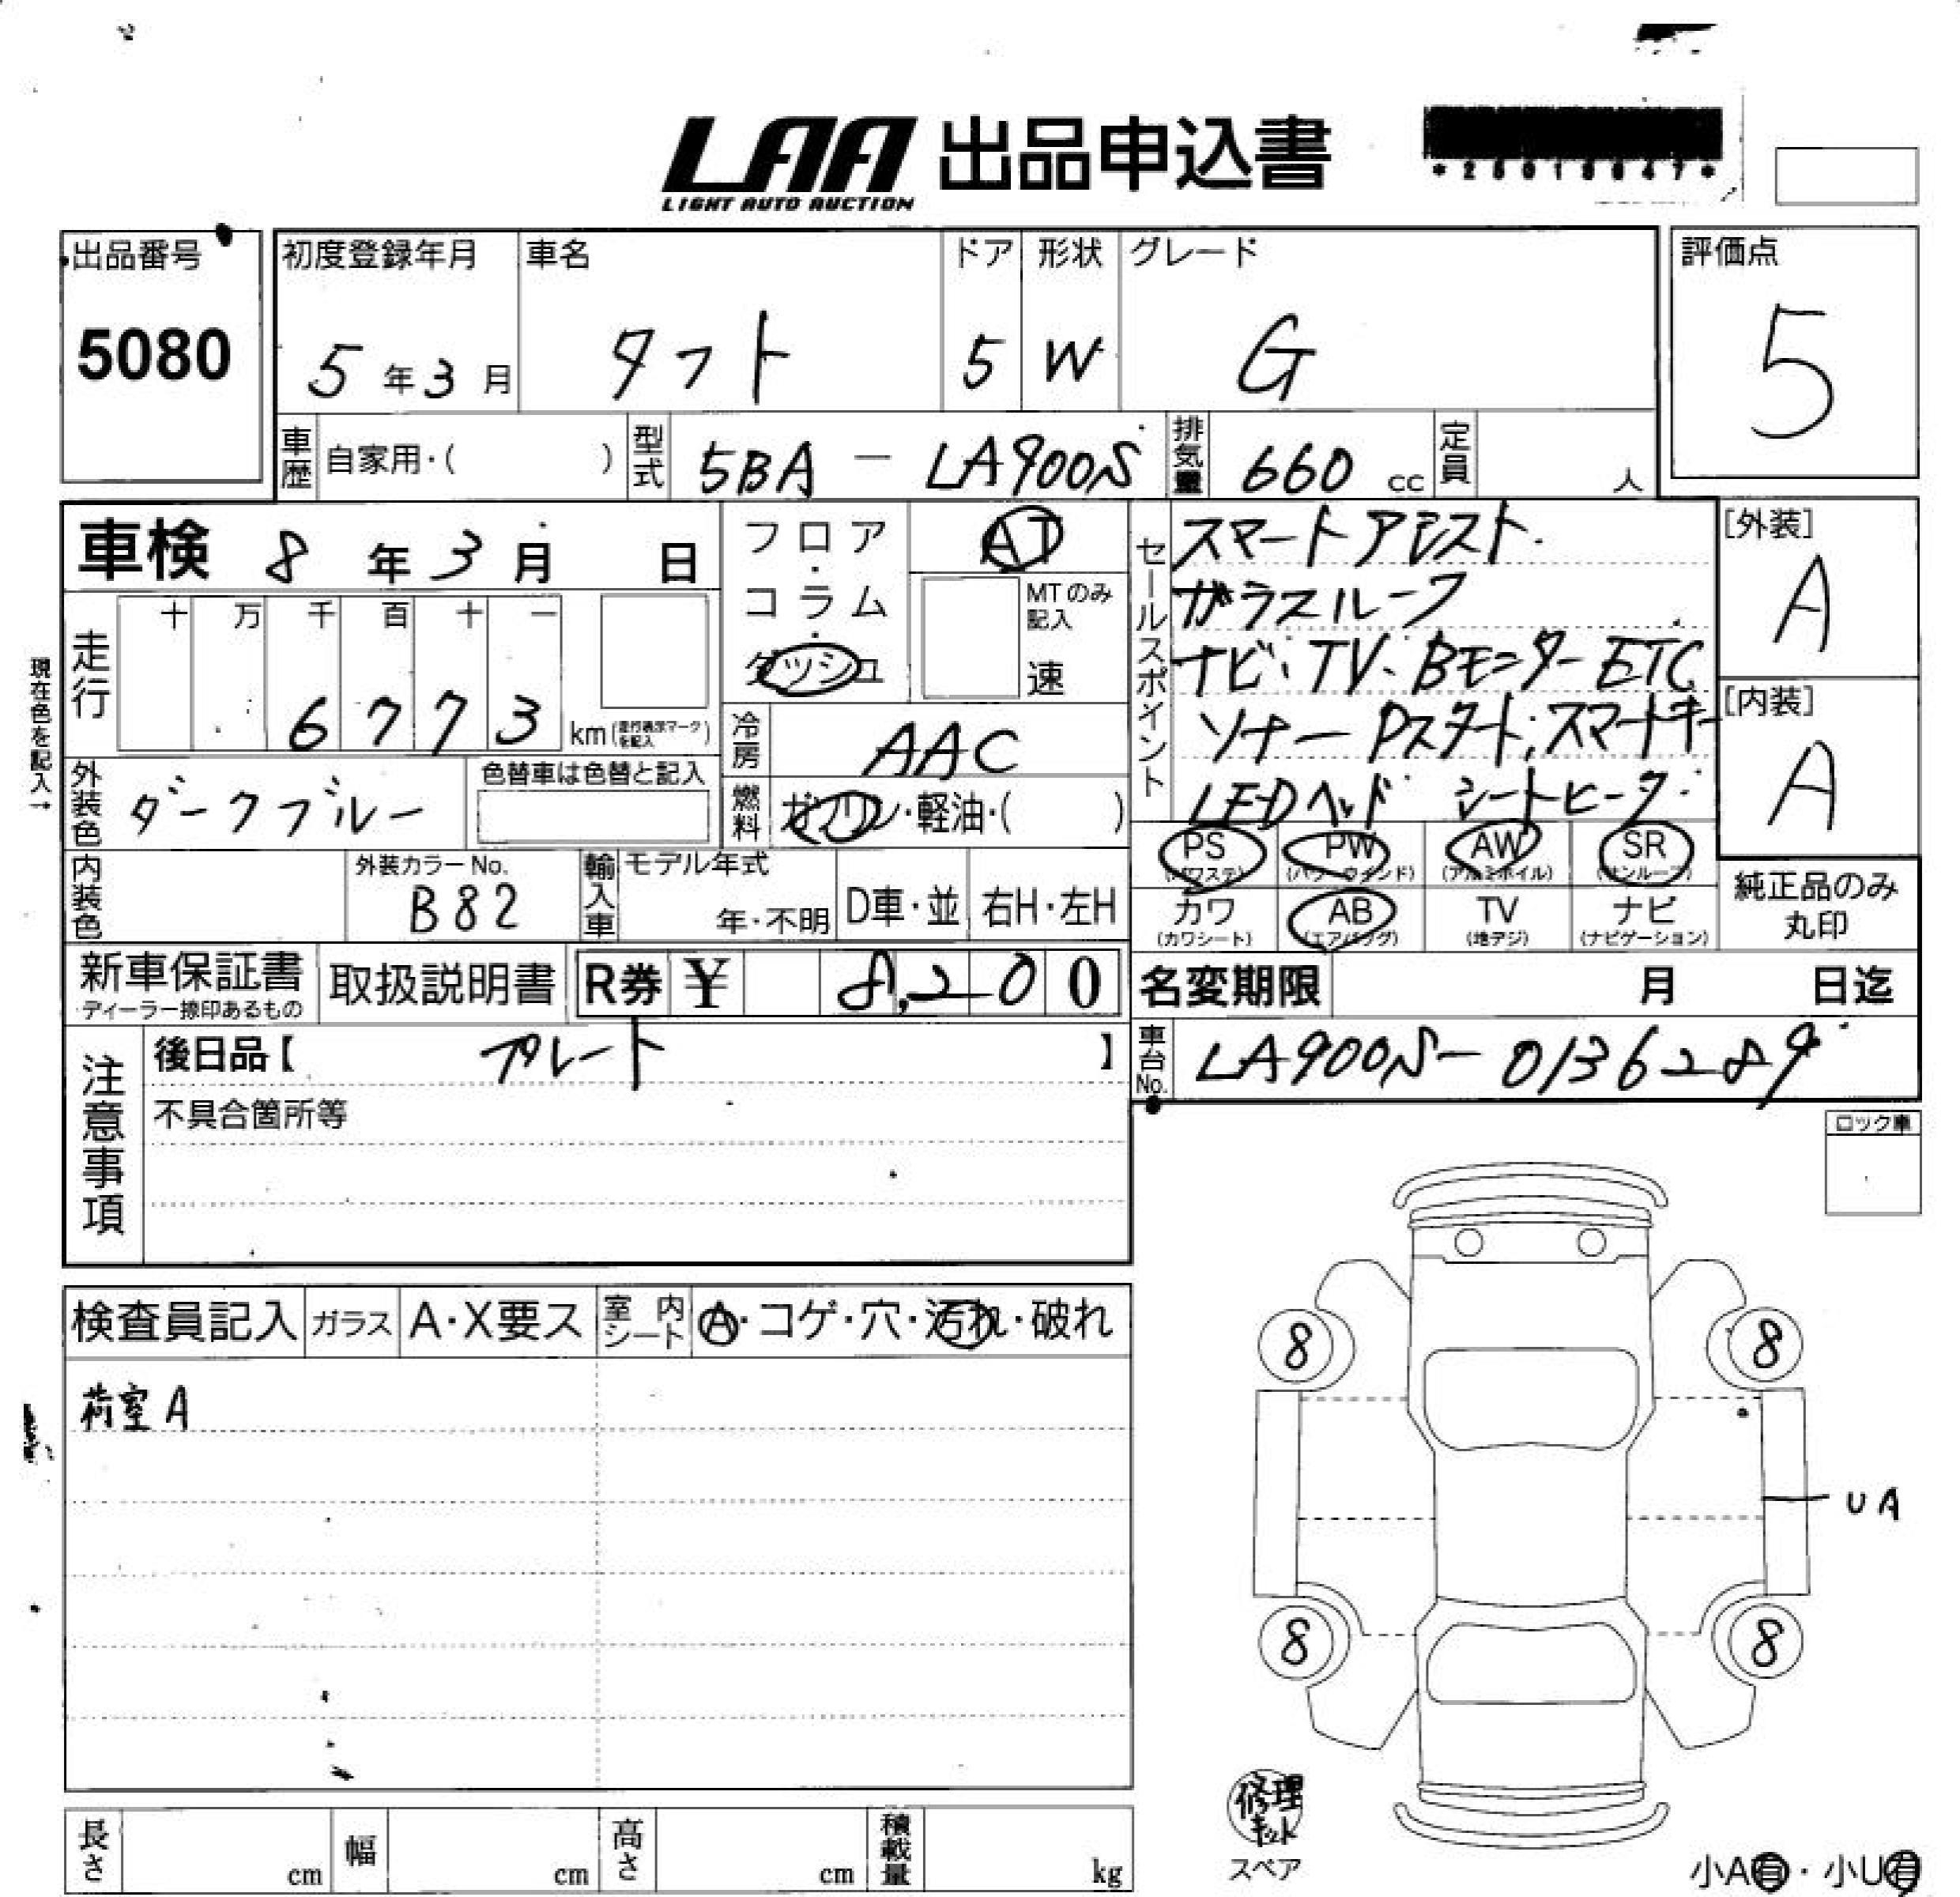 LAA 出品申込書
LIGHT AUTO AUCTION
出品番号
5080
初度登録年月
5年3月
車名
タフト
ドア
5
形状
W
グレード
G
評価点
5
車歴 自家用・( )
型式 5BA - LA900S
排気量 660 cc
定員 人
車検 8年3月 日
フロア・コラム・ダッシュ
AT
MTのみ記入
速
走行 十 万 千 百 十 一
6773 km (走行表示マークを記入)
現在色を記入→
冷房 AAC
燃料 ガソリン・軽油・( )
外装色 ダークブルー
色替車は色替と記入
内装色
外装カラーNo.
B82
輸入車 モデル年式
年・不明 D車・並 右H・左H
セールスポイント
スマートアシスト
ガラスルーフ
ナビ、TV、Bモニター ETC
ソナー Pスタート、スマートキー
LEDヘッド シートヒーター
[外装]
A
[内装]
A
PS (パワステ) PW (パワーウインド) AW (アルミホイル) SR (サンルーフ)
カワ (カワシート) AB (エアバッグ) TV (地デジ) ナビ (ナビゲーション)
純正品のみ
丸印
新車保証書
ディーラー捺印あるもの
取扱説明書
R券 ¥ 8,200
名変期限 月 日迄
車台No. LA900S-0136289
注意事項
後日品【 プレート 】
不具合箇所等
ロック車
検査員記入 ガラス A・X要ス 室内シート A・コゲ・穴・汚れ・破れ
荷室A
8 8
UA
8 8
修理キット
スペア
小A有・小U有
長さ cm 幅 cm 高さ cm 積載量 kg